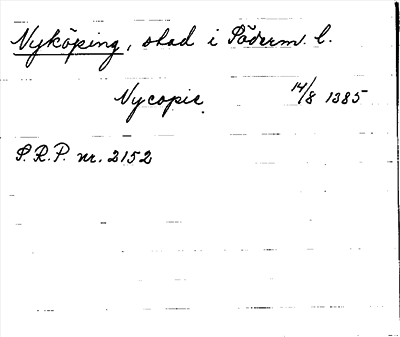 Nyköping, stad i Söderm. l.
Nycopie. 14/8 1385
S.R.P. nr. 2152